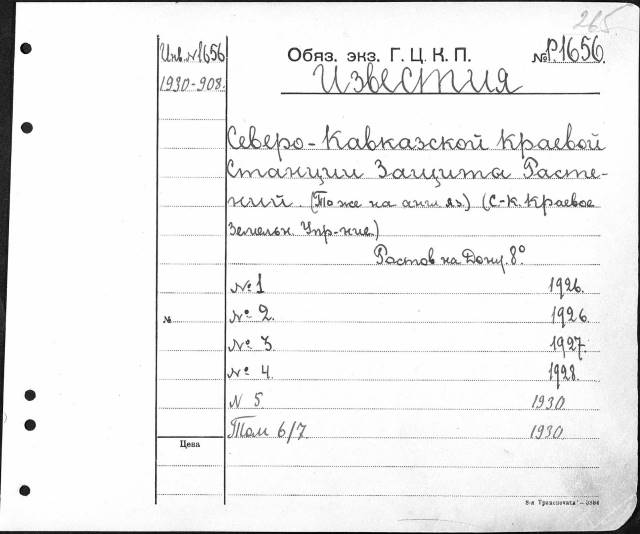 265
Инв. №1656
Обяз. экз. Г. Ц. К. П.
№Р.1656
1930-908.
Известия
Северо-Кавказской Краевой
Станции Защиты Расте-
ний. (То же на англ. яз.) (С-К. Краевое
Земельн. Упр-ние)
Ростов на Дону. 8°
№ 1 1926.
№ 2. 1926.
№
№ 3. 1927.
№ 4. 1928.
N 5. 1930.
Том 6/7. 1930.
Цена
8-я Транспечать — 3394